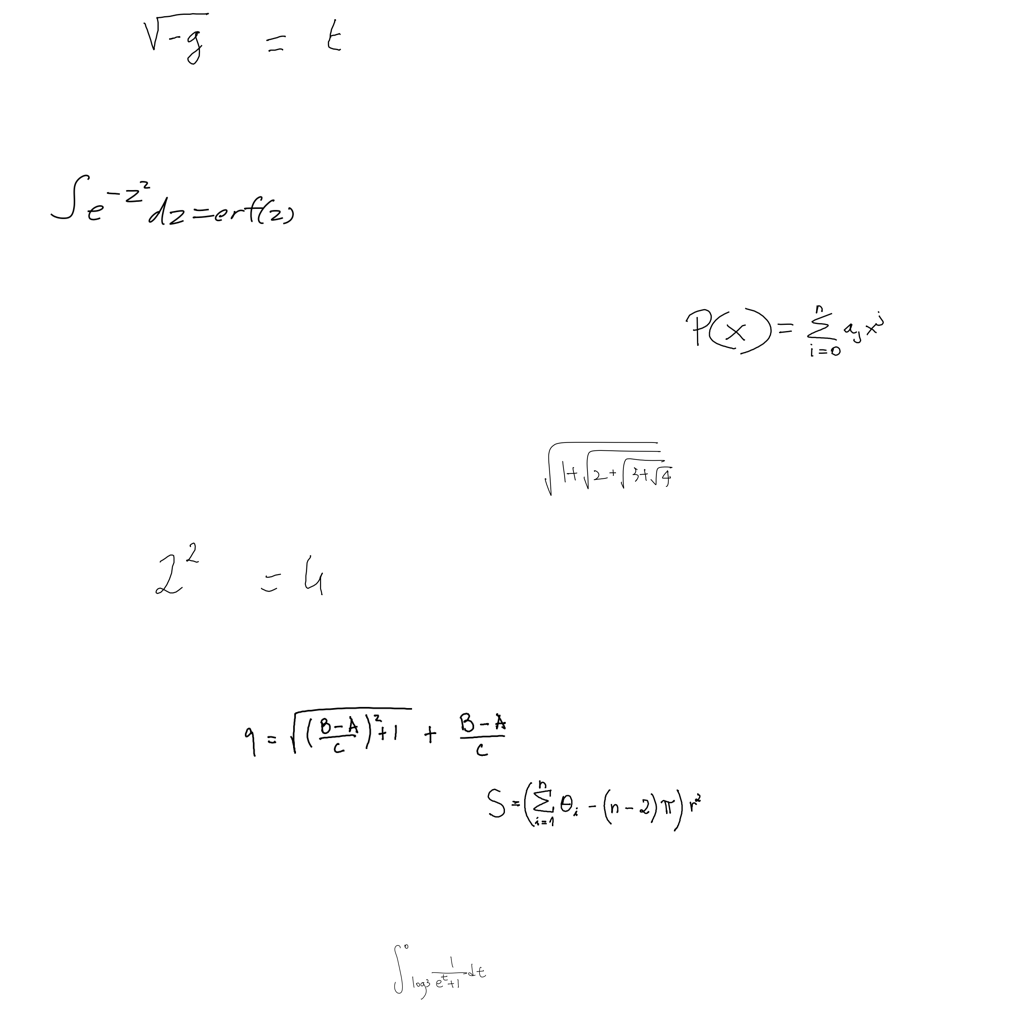 √-g = t
∫e^{-z^2}dz=erf(z)
P(x)=∑_{i=0}^{n} a_j x^j
√(1+√(2+√(3+√4)))
2^2 = 4
q=√(((B-A)/c)^2+1) + (B-A)/c
S=(∑_{i=1}^{n} θ_i-(n-2)π)r^2
∫_{log3}^{0} 1/(e^t+1) dt